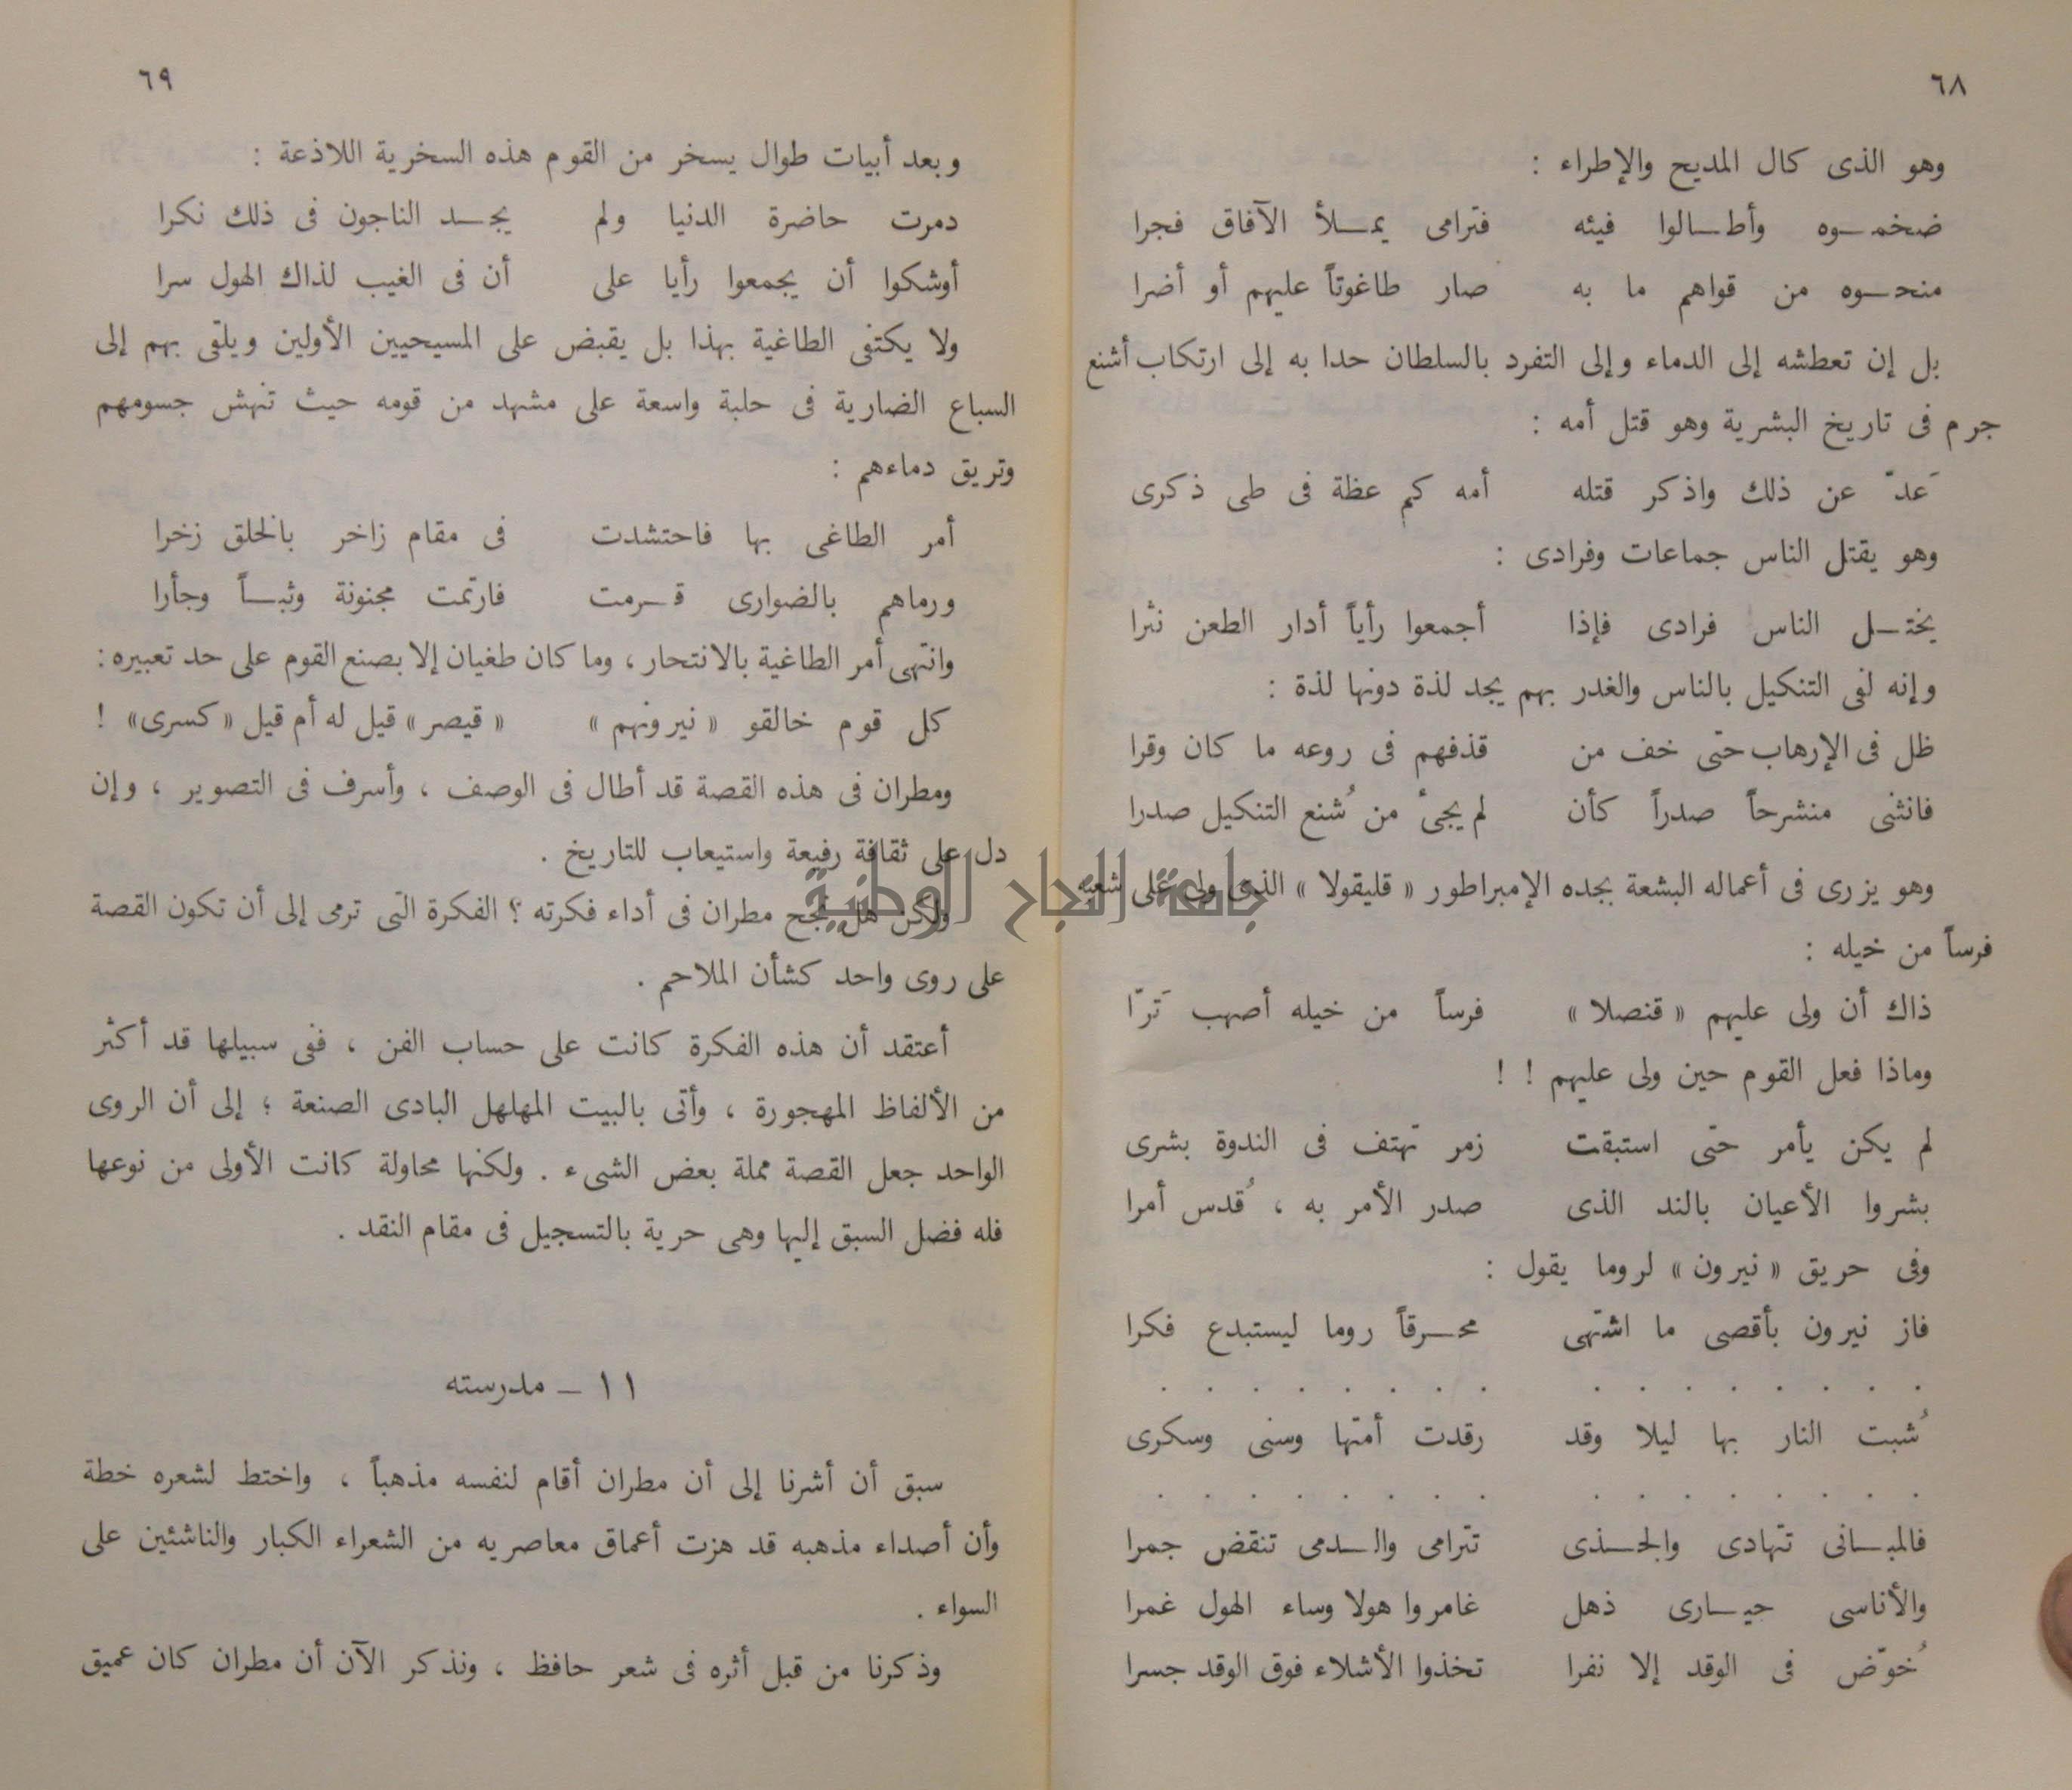 ٦٨
وهو الذى كال المديح والإطراء :
ضخمـوه وأطـالوا فيئه فترامى يمـلأ الآفاق فجرا
منحـوه من قواهم ما به صار طاغوتاً عليهم أو أضرا
بل إن تعطشه إلى الدماء وإلى التفرد بالسلطان حدا به إلى ارتكاب أشنع
جرم فى تاريخ البشرية وهو قتل أمه :
عَدّ عن ذلك واذكر قتله أمه كم عظة فى طى ذكرى
وهو يقتل الناس جماعات وفرادى :
يختـل الناس فرادى فإذا أجمعوا رأياً أدار الطعن نثرا
وإنه لفى التنكيل بالناس والغدر بهم يجد لذة دونها لذة :
ظل فى الإرهاب حتى خف من قذفهم فى روعه ما كان وقرا
فانثنى منشرحاً صدراً كأن لم يجئ من شُنع التنكيل صدرا
وهو يزرى فى أعماله البشعة بجده الإمبراطور « قليقولا » الذى ولى على شعبه
فرساً من خيله :
ذاك أن ولى عليهم « قنصلا » فرساً من خيله أصهب تَرّا
وماذا فعل القوم حين ولى عليهم ! !
لم يكن يأمر حتى استبقت زمر تهتف فى الندوة بشرى
بشروا الأعيان بالند الذى صدر الأمر به ، قُدس أمرا
وفى حريق « نيرون » لروما يقول :
فاز نيرون بأقصى ما اشتهى محـرقاً روما ليستبدع فكرا
. . . . . . . . . . . . . . . .
شُبت النار بها ليلا وقد رقدت أمتها وسنى وسكرى
. . . . . . . . . . . . . . . .
فالمبـانى تتهادى والجـذى تترامى والـدمى تنقض جمرا
والأناسى حيـارى ذهل غامروا هولا وساء الهول غمرا
خُوّض فى الوقد إلا نفرا تخذوا الأشلاء فوق الوقد جسرا
٦٩
وبعد أبيات طوال يسخر من القوم هذه السخرية اللاذعة :
دمرت حاضرة الدنيا ولم يجـد الناجون فى ذلك نكرا
أوشكوا أن يجمعوا رأيا على أن فى الغيب لذاك الهول سرا
ولا يكتفى الطاغية بهذا بل يقبض على المسيحيين الأولين ويلقى بهم إلى
السباع الضارية فى حلبة واسعة على مشهد من قومه حيث تنهش جسومهم
وتريق دماءهم :
أمر الطاغى بها فاحتشدت فى مقام زاخر بالخلق زخرا
ورماهم بالضوارى قـرمت فارتمت مجنونة وثبـاً وجأرا
وانتهى أمر الطاغية بالانتحار ، وما كان طغيان إلا بصنع القوم على حد تعبيره :
كل قوم خالقو « نيرونهم » « قيصر » قيل له أم قيل « كسرى » !
ومطران فى هذه القصة قد أطال فى الوصف ، وأسرف فى التصوير ، وإن
دل على ثقافة رفيعة واستيعاب للتاريخ .
ولكن هل نجح مطران فى أداء فكرته ؟ الفكرة التى ترمى إلى أن تكون القصة
على روى واحد كشأن الملاحم .
أعتقد أن هذه الفكرة كانت على حساب الفن ، ففى سبيلها قد أكثر
من الألفاظ المهجورة ، وأتى بالبيت المهلهل البادى الصنعة ؛ إلى أن الروى
الواحد جعل القصة مملة بعض الشىء . ولكنها محاولة كانت الأولى من نوعها
فله فضل السبق إليها وهى حرية بالتسجيل فى مقام النقد .
١١ – مدرسته
سبق أن أشرنا إلى أن مطران أقام لنفسه مذهباً ، واختط لشعره خطة
وأن أصداء مذهبه قد هزت أعماق معاصريه من الشعراء الكبار والناشئين على
السواء .
وذكرنا من قبل أثره فى شعر حافظ ، ونذكر الآن أن مطران كان عميق
جامعة النجاح الوطنية